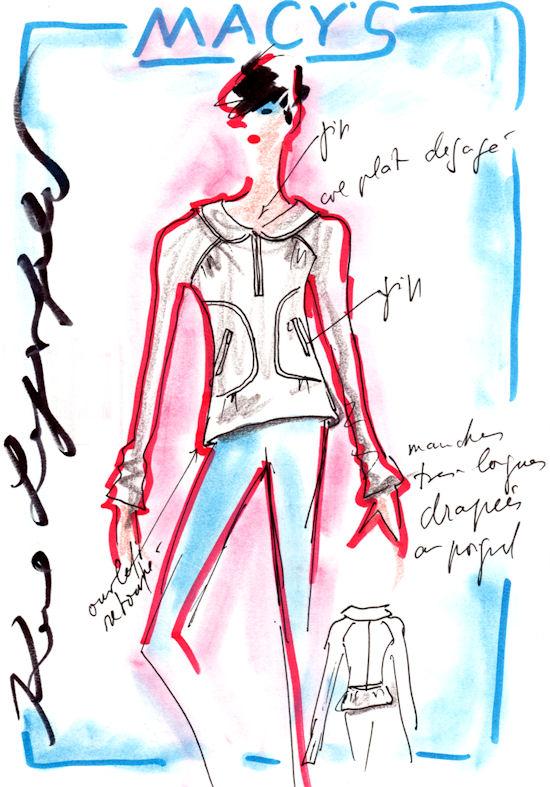 MACY'S
Karl Lagerfeld
zip
col plat dégagé
zip
manches
très longues
drapées
au poignet
ourlet